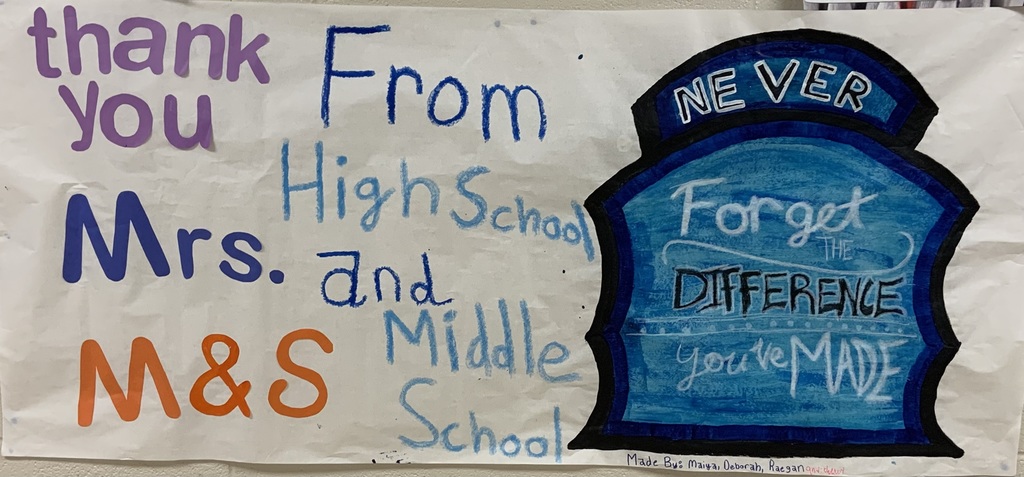 thank
you
Mrs.
M&S
From
High School
and
Middle
School
NEVER
Forget
THE
DIFFERENCE
you've MADE
Made By: Maiya, Deborah, Raegan